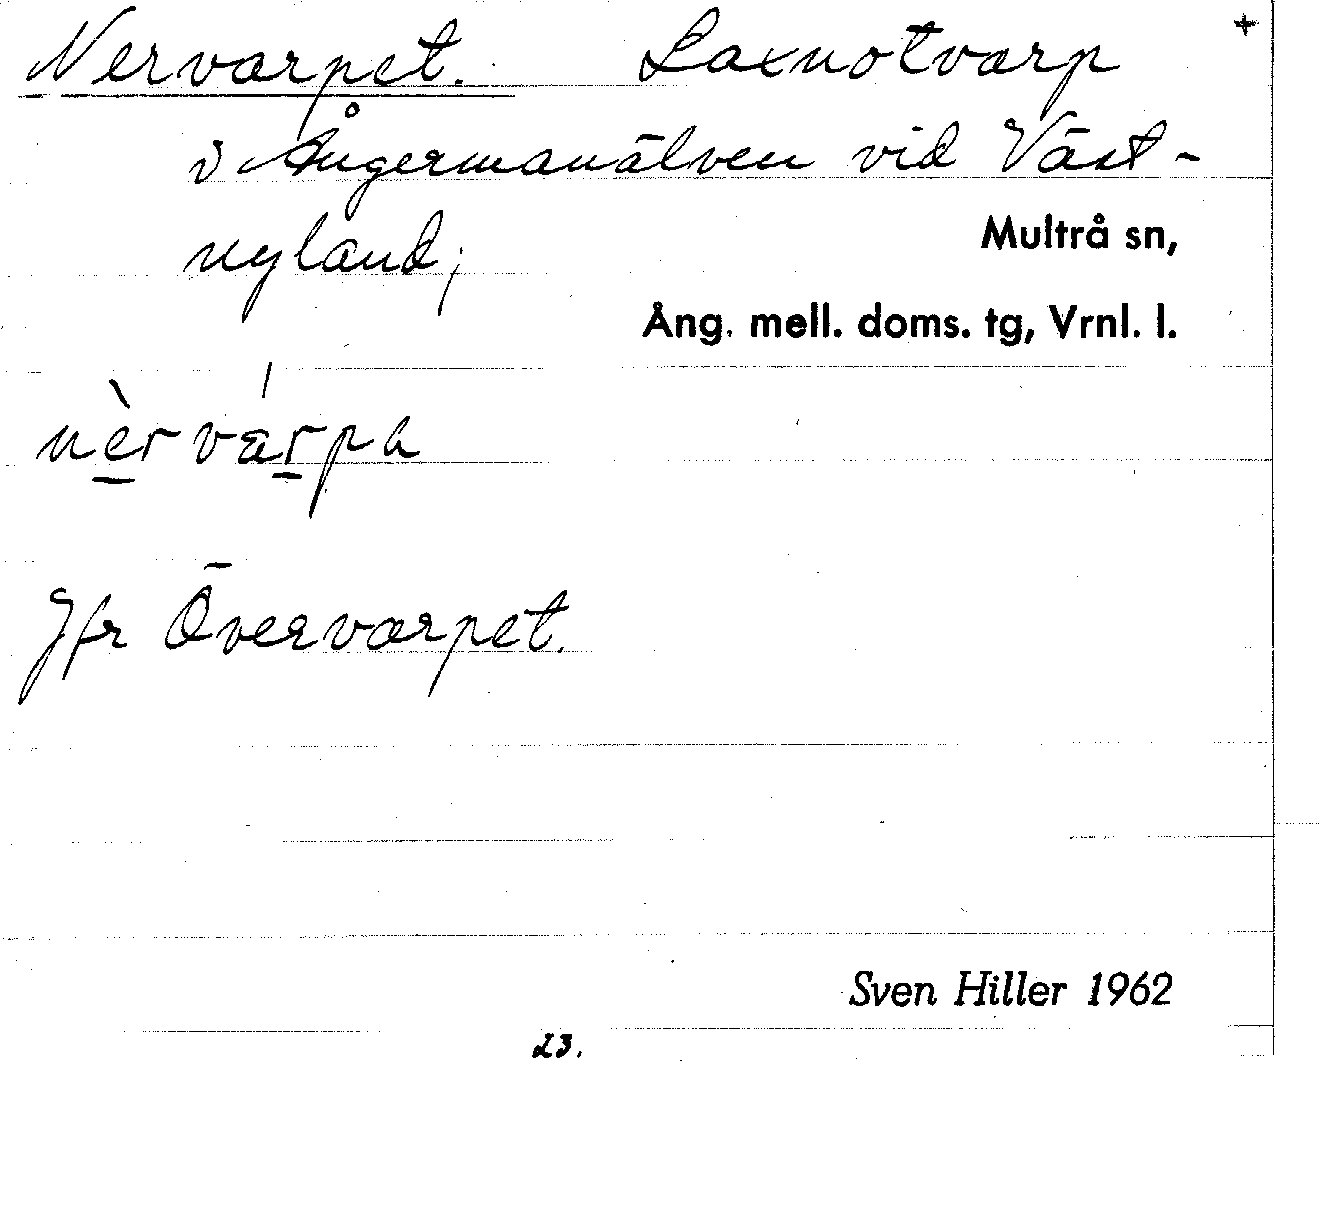 Nervarpet. Laxnotvarp +
i Ångermanälven vid Väst-
nyland;
Multrå sn,
Ång. mell. doms. tg, Vrnl. l.
nèrvárpa
Jfr Övervarpet.
Sven Hiller 1962
23.